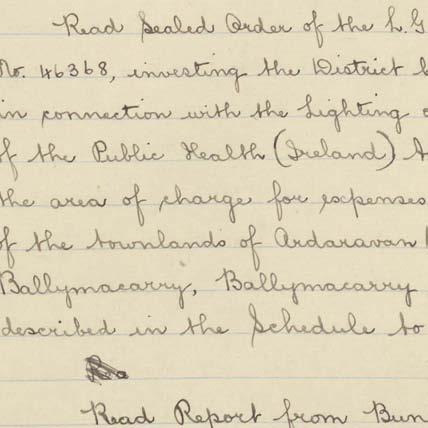 Read Sealed Order of the L.G
No. 46368, investing the District
in connection with the Lighting
of the Public Health (Ireland)
the area of charge for expenses
of the townlands of Ardaravan
Ballymacarry, Ballymacarry
described in the Schedule to
Read Report from Bun